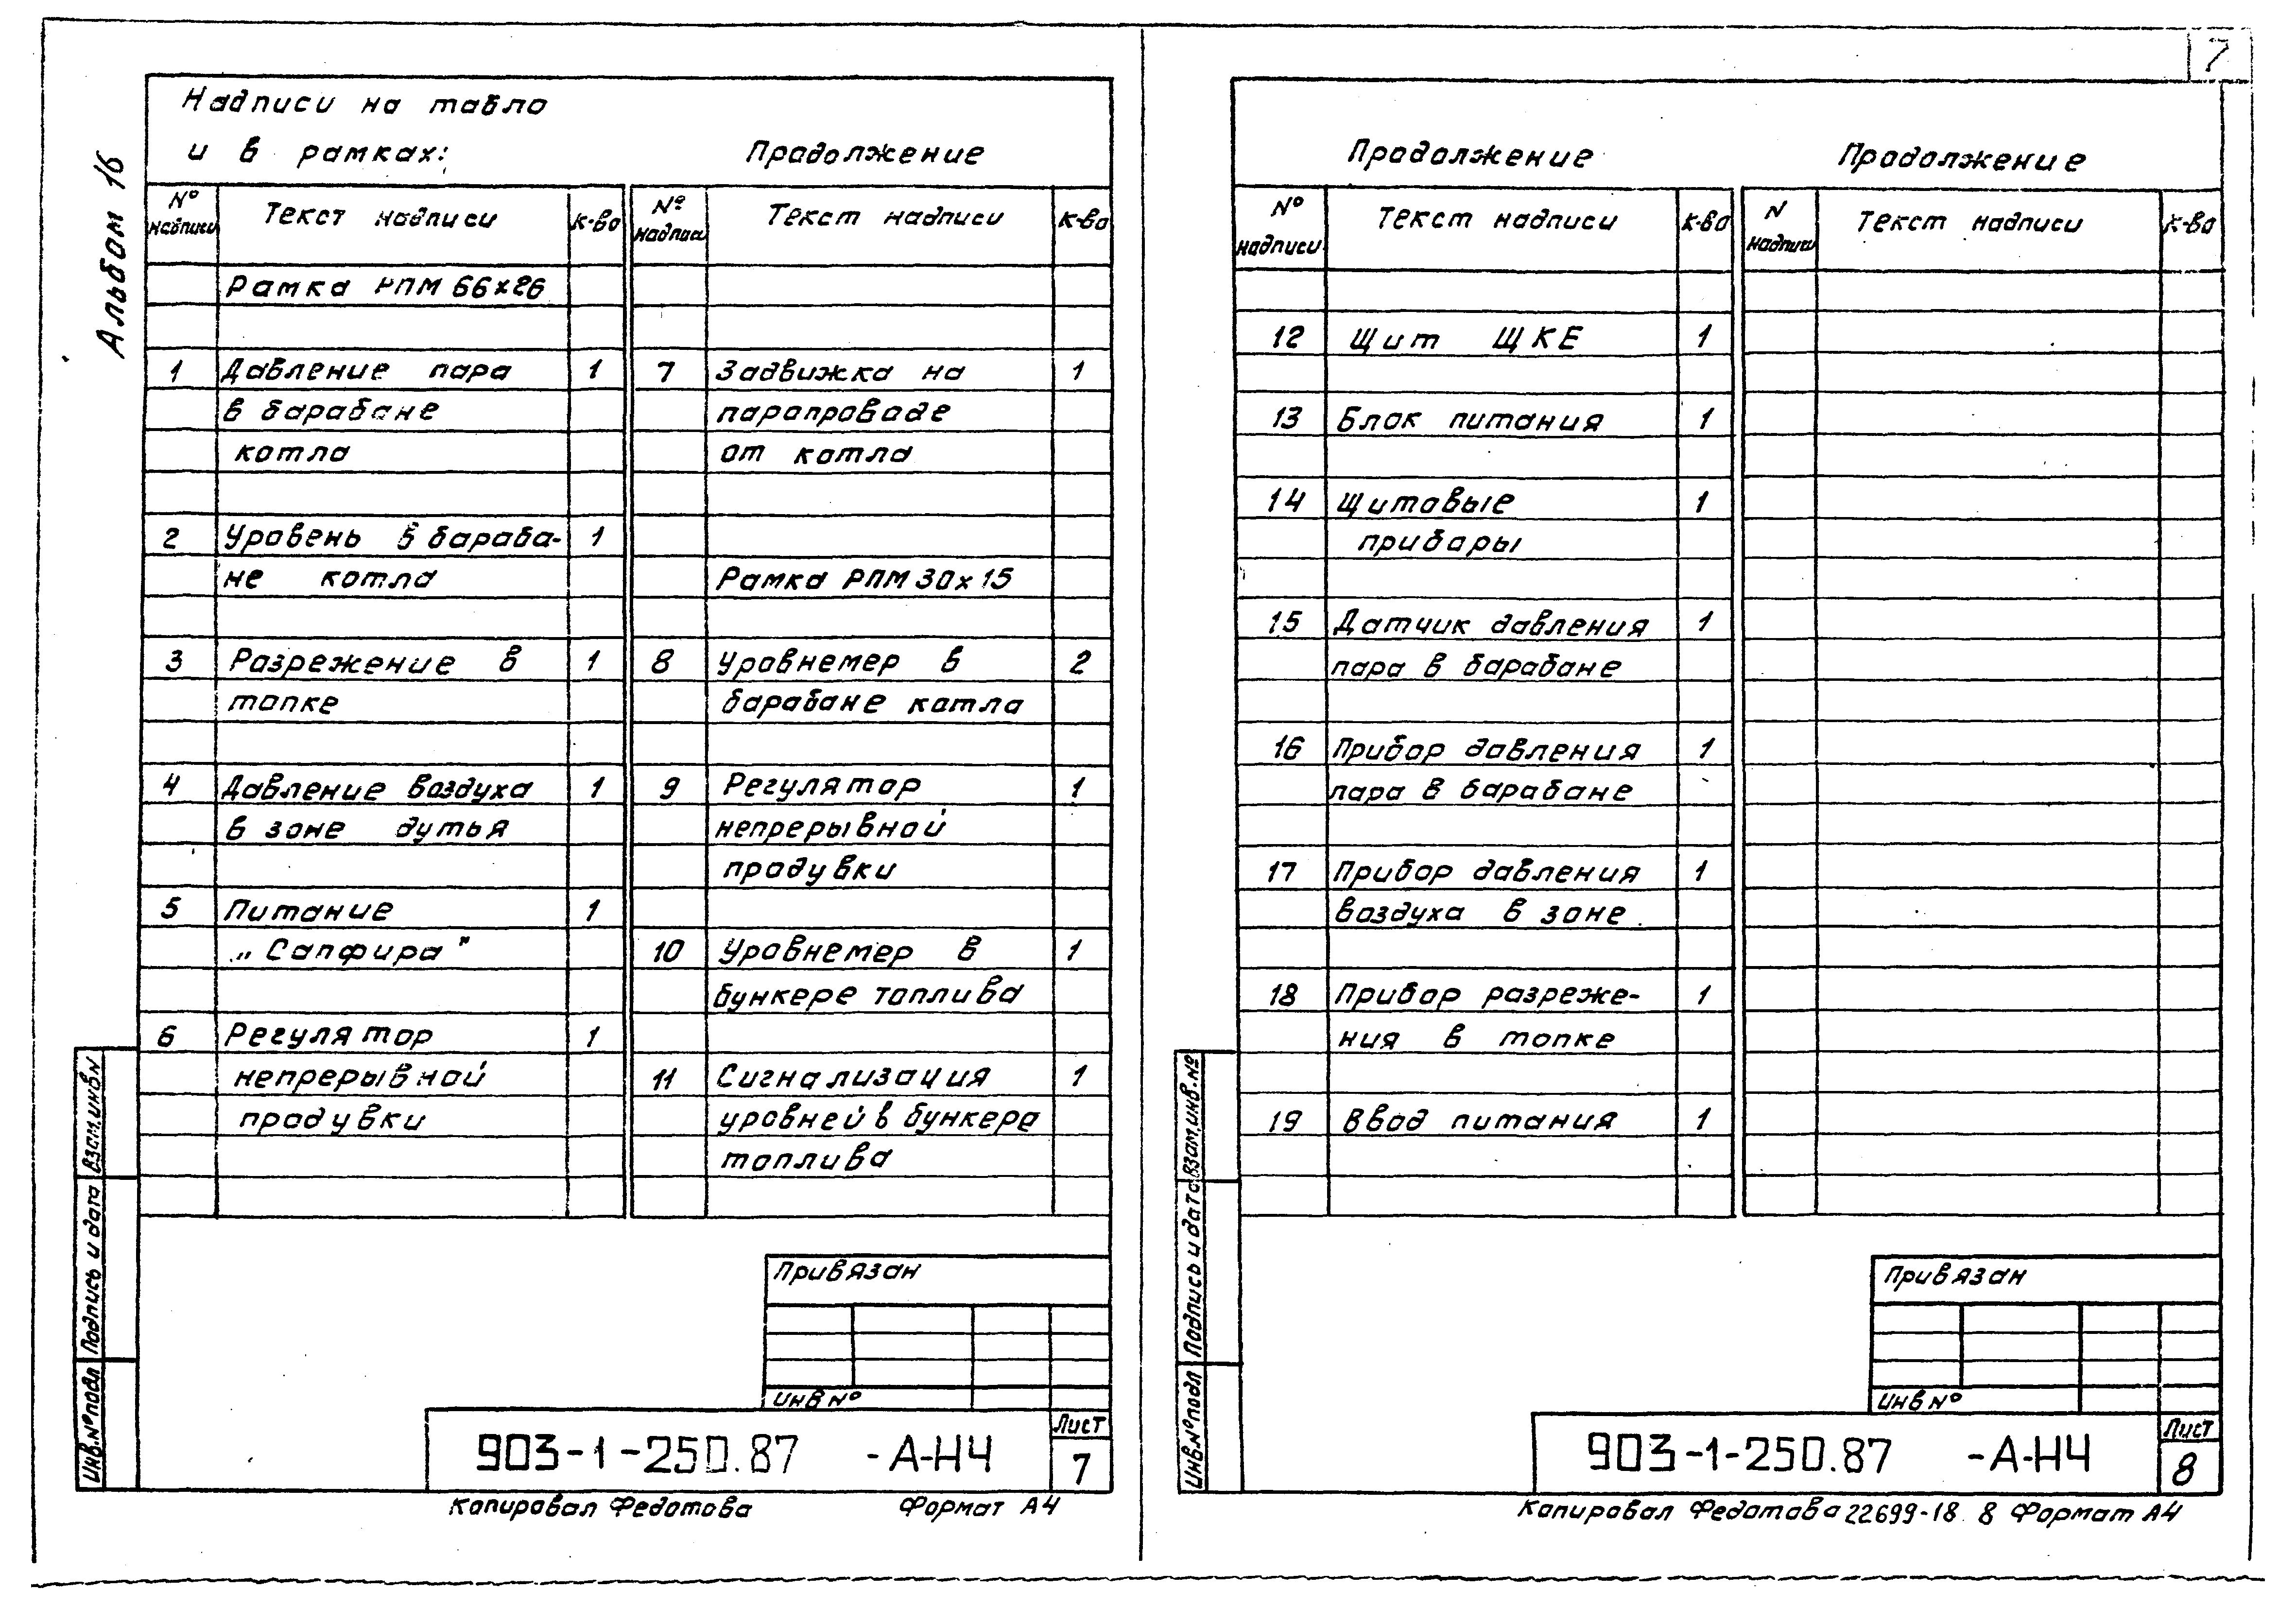 7
Альбом 16
Надписи на табло
и в рамках:
Продолжение
№ надписи Текст надписи к-во
Рамка РПМ 66х26
1 Давление пара 1
в барабане
котла
2 Уровень в бараба- 1
не котла
3 Разрежение в 1
топке
4 Давление воздуха 1
в зоне дутья
5 Питание 1
„Сапфира"
6 Регулятор 1
непрерывной
продувки
№ надписи Текст надписи к-во
7 Задвижка на 1
паропроводе
от котла
Рамка РПМ 30х15
8 Уровнемер в 2
барабане котла
9 Регулятор 1
непрерывной
продувки
10 Уровнемер в 1
бункере топлива
11 Сигнализация 1
уровней в бункера
топлива
Взам.инв№
Подпись и дата
Инв.№подл
Привязан
Инв№
903-1-250.87 -А-Н4
Лист
7
Копировал Федотова Формат А4
Продолжение
№ надписи Текст надписи к-во
12 Щит ЩКЕ 1
13 Блок питания 1
14 Щитовые 1
приборы
15 Датчик давления 1
пара в барабане
16 Прибор давления 1
пара в барабане
17 Прибор давления 1
воздуха в зоне
18 Прибор разреже- 1
ния в топке
19 Ввод питания 1
Продолжение
N надписи Текст надписи к-во
Взам.инв.№
Подпись и дата
Инв.№подл
Привязан
Инв№
903-1-250.87 -А-Н4
Лист
8
Копировал Федотова 22699-18 8 Формат А4